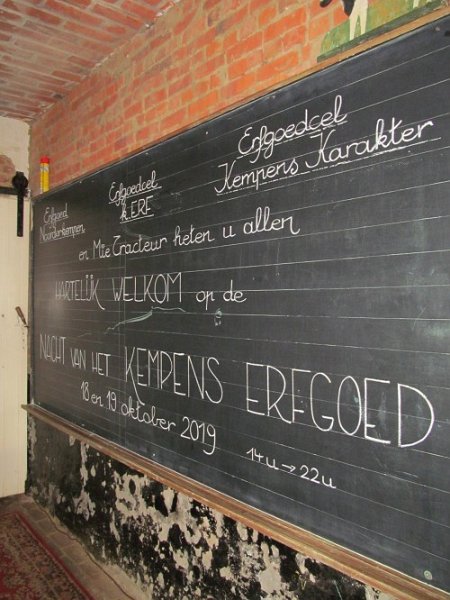 Erfgoed Noorderkempen
Erfgoedcel k.ERF
Erfgoedcel Kempens Karakter
en Mie Tracteur heten u allen
HARTELIJK WELKOM op de
NACHT VAN HET KEMPENS ERFGOED
18 en 19 oktober 2019
14u → 22u